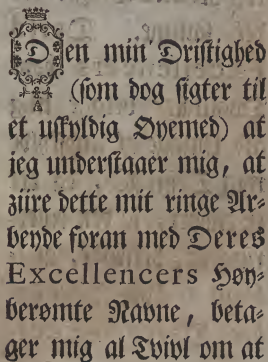 Den min Driftighed
(som dog sigter til
et uskyldig Øyemed) at
jeg understaaer mig, at
ziire dette mit ringe Ar-
beyde foran med Deres
Excellencers Høy-
berømte Navne, beta-
ger mig al Tvivl om at